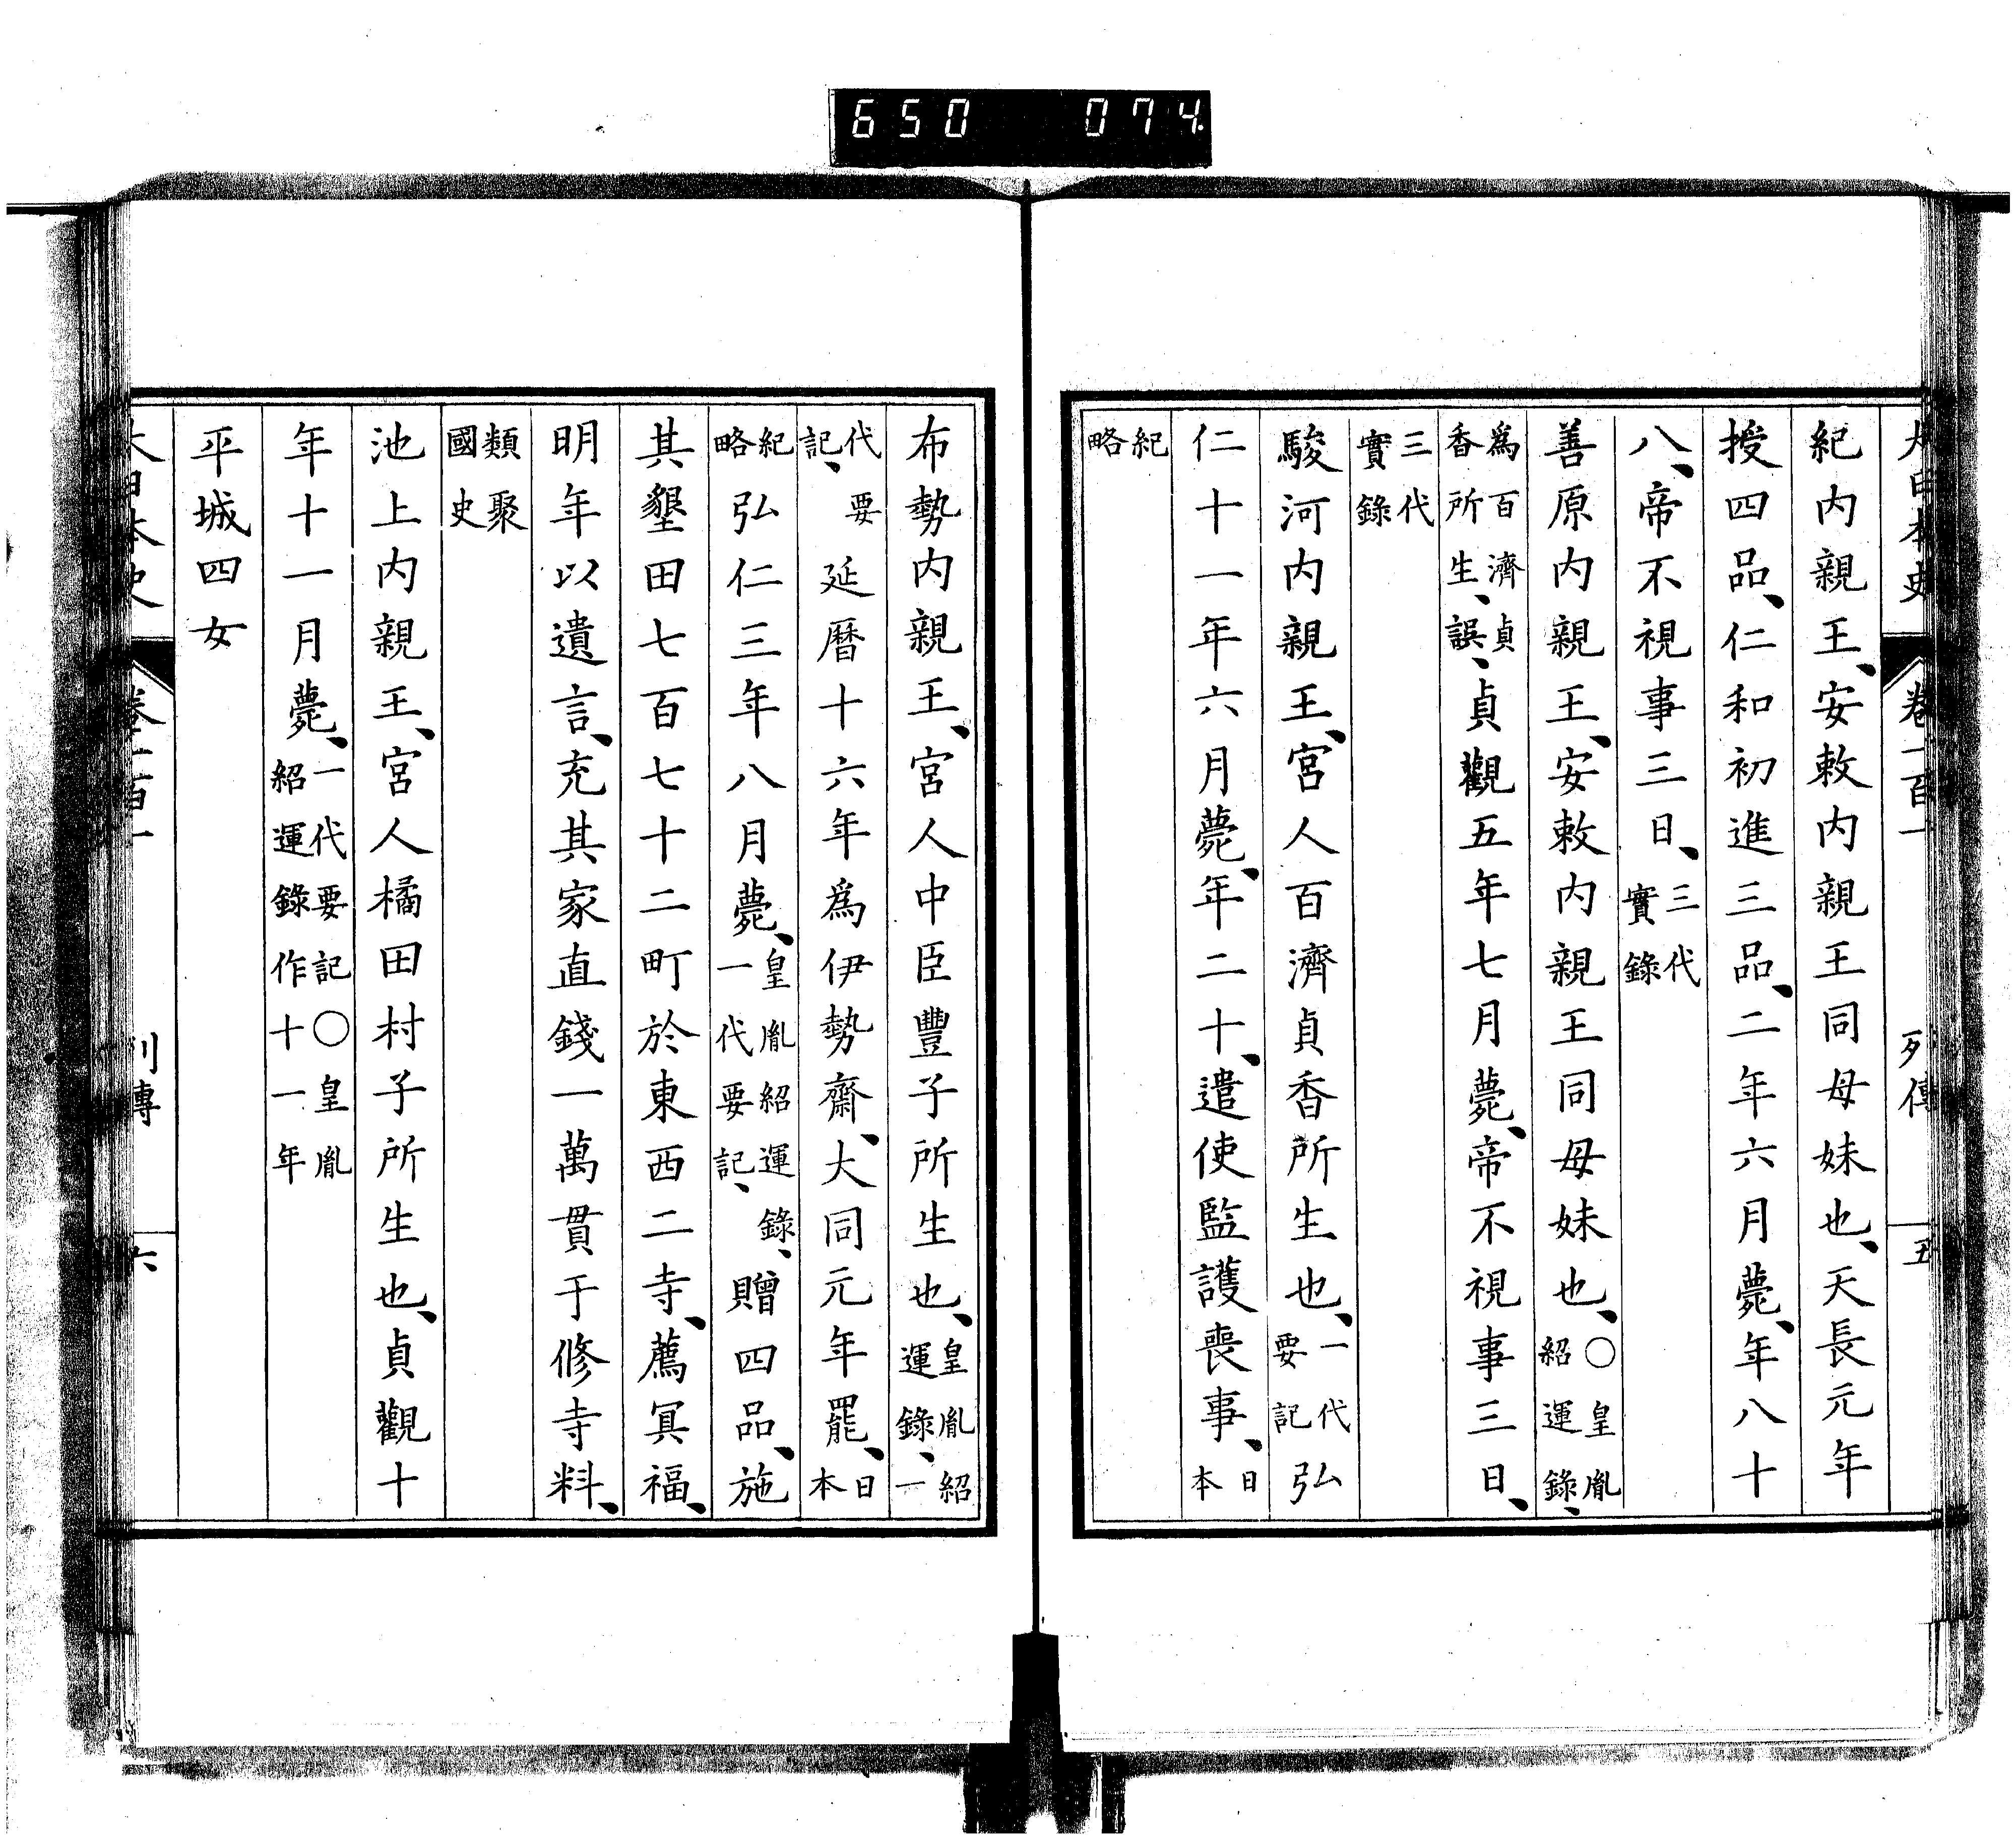 650 074
大日本史 卷一百一 列傳 五
紀内親王、安敕内親王同母妹也、天長元年
授四品、仁和初進三品、二年六月薨、年八十
八、帝不視事三日、三代實錄
善原内親王、安敕内親王同母妹也、○皇胤紹運錄、
爲百濟貞香所生、誤、貞觀五年七月薨、帝不視事三日、
三代實錄
駿河内親王、宮人百濟貞香所生也、一代要記弘
仁十一年六月薨、年二十、遣使監護喪事、日本
紀略
布勢内親王、宮人中臣豐子所生也、皇胤紹運錄、一
代要記、延曆十六年爲伊勢齋、大同元年罷、日本
紀略弘仁三年八月薨、皇胤紹運錄、一代要記、贈四品、施
其墾田七百七十二町於東西二寺、薦冥福、
明年以遺言、充其家直錢一萬貫于修寺料、
類聚國史
池上内親王、宮人橘田村子所生也、貞觀十
年十一月薨、一代要記○皇胤紹運錄作十一年
平城四女
大日本史 卷一百一 列傳 六